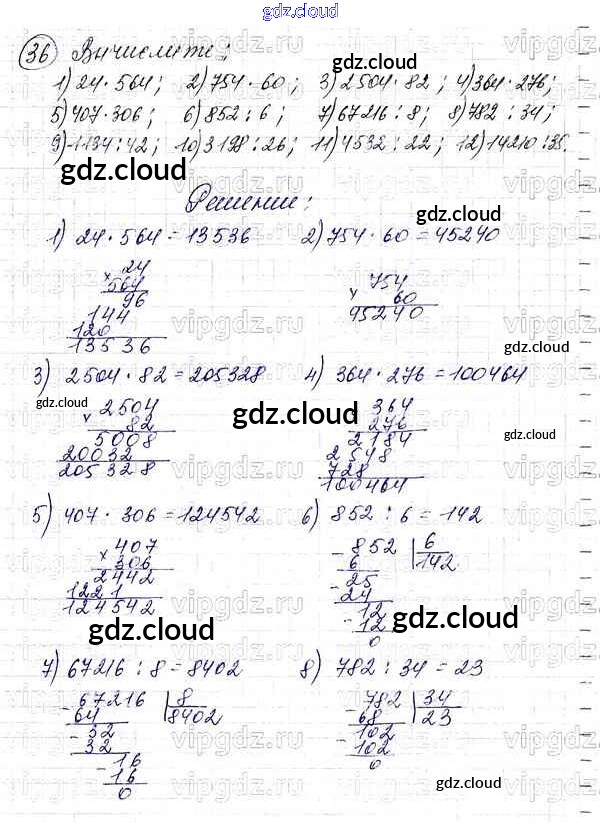 gdz.cloud
36 Вычислите:
1) 24 · 564; 2) 754 · 60; 3) 2504 · 82; 4) 364 · 276;
5) 407 · 306; 6) 852 : 6; 7) 67216 : 8; 8) 782 : 34;
9) 1134 : 42; 10) 3198 : 26; 11) 4532 : 22; 12) 14210 : 35.
gdz.cloud
Решение:
gdz.cloud
1) 24 · 564 = 13536 2) 754 · 60 = 45240
× 24
564
96
144
120
13536
× 754
60
45240
3) 2504 · 82 = 205328 4) 364 · 276 = 100464
gdz.cloud gdz.cloud gdz.cloud
× 2504
82
5008
20032
205328
× 364
276
2184
2548
728
100464
5) 407 · 306 = 124542 6) 852 : 6 = 142
× 407
306
2442
1221
124542
- 852 | 6
6 142
- 25
24
- 12
12
0
gdz.cloud gdz.cloud
7) 67216 : 8 = 8402 8) 782 : 34 = 23
- 67216 | 8
64 8402
- 32
32
- 16
16
0
- 782 | 34
68 23
- 102
102
0
gdz.cloud
gdz.cloud
vipgdz.ru